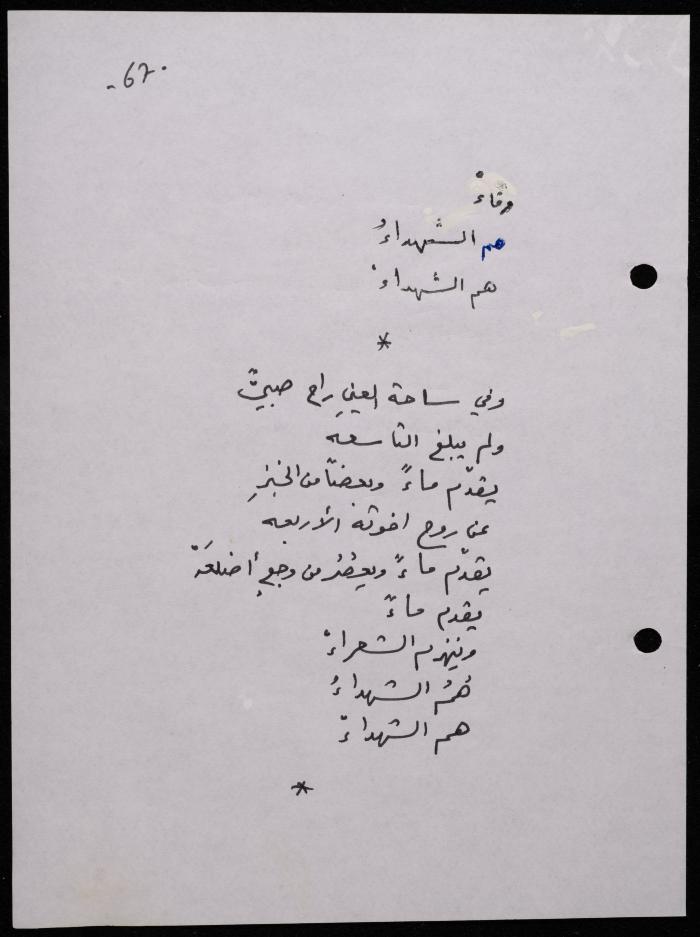 - 67 -
وفاءْ
هم الشهداءُ
هم الشهداءْ
*
وفي ساحة العينِ راح صبيٌّ
ولم يبلغ التاسعه
يقدّم ماءً وبعضاً من الخبزِ
عن روح اخوته الأربعه
يقدّم ماءً ويعصُر من وجعٍ أضلعَهْ
يقدم ماءً
وينهزم الشعراءْ
هُمُ الشهداءُ
هم الشهداءْ
*